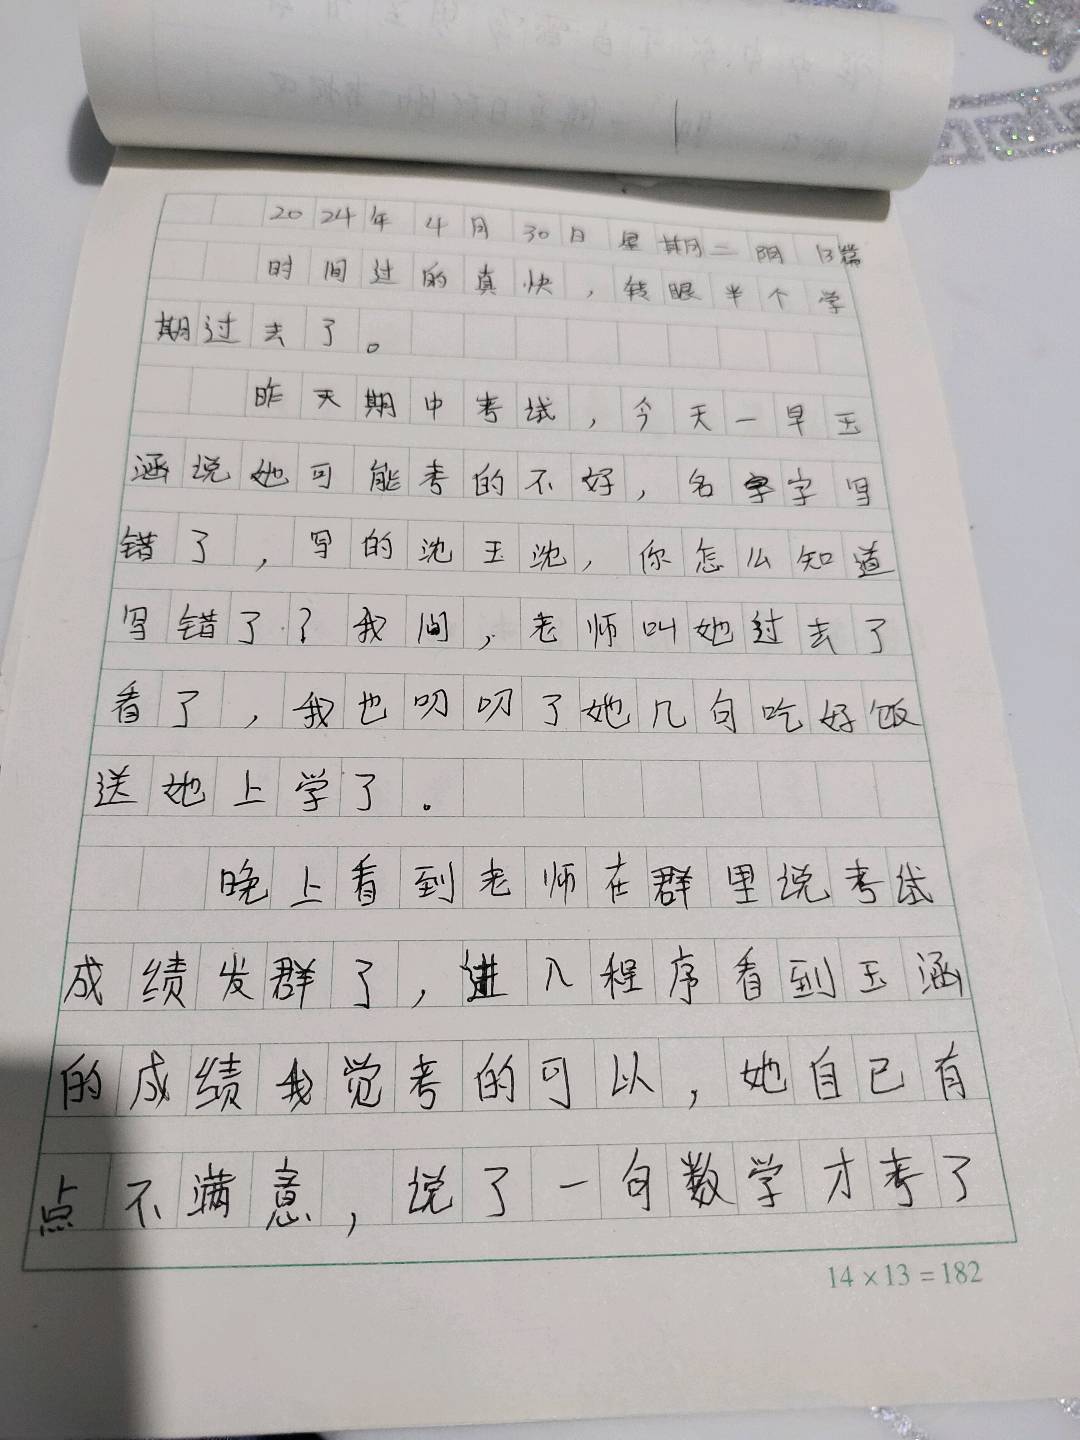 2024年4月30日星期二 阴 13篇
时间过的真快，转眼半个学
期过去了。
昨天期中考试，今天一早玉
涵说她可能考的不好，名字字写
错了，写的沈玉沈，你怎么知道
写错了？我间，老师叫她过去了
看了，我也叨叨了她几句吃好饭
送她上学了。
晚上看到老师在群里说考试
成绩发群了，进入程序看到玉涵
的成绩我觉考的可以，她自己有
点不满意，说了一句数学才考了
14×13=182